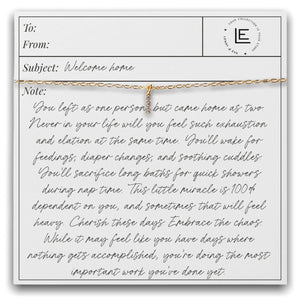 To:
From:
LE
Subject: Welcome home
Note:
You left as one person, but came home as two.
Never in your life will you feel such exhaustion
and elation at the same time. You'll wake for
feedings, diaper changes, and soothing cuddles.
You'll sacrifice long baths for quick showers
during nap time. This little miracle is 100%
dependent on you, and sometimes that will feel
heavy. Cherish these days. Embrace the chaos.
While it may feel like you have days where
nothing gets accomplished, you're doing the most
important work you've done yet.